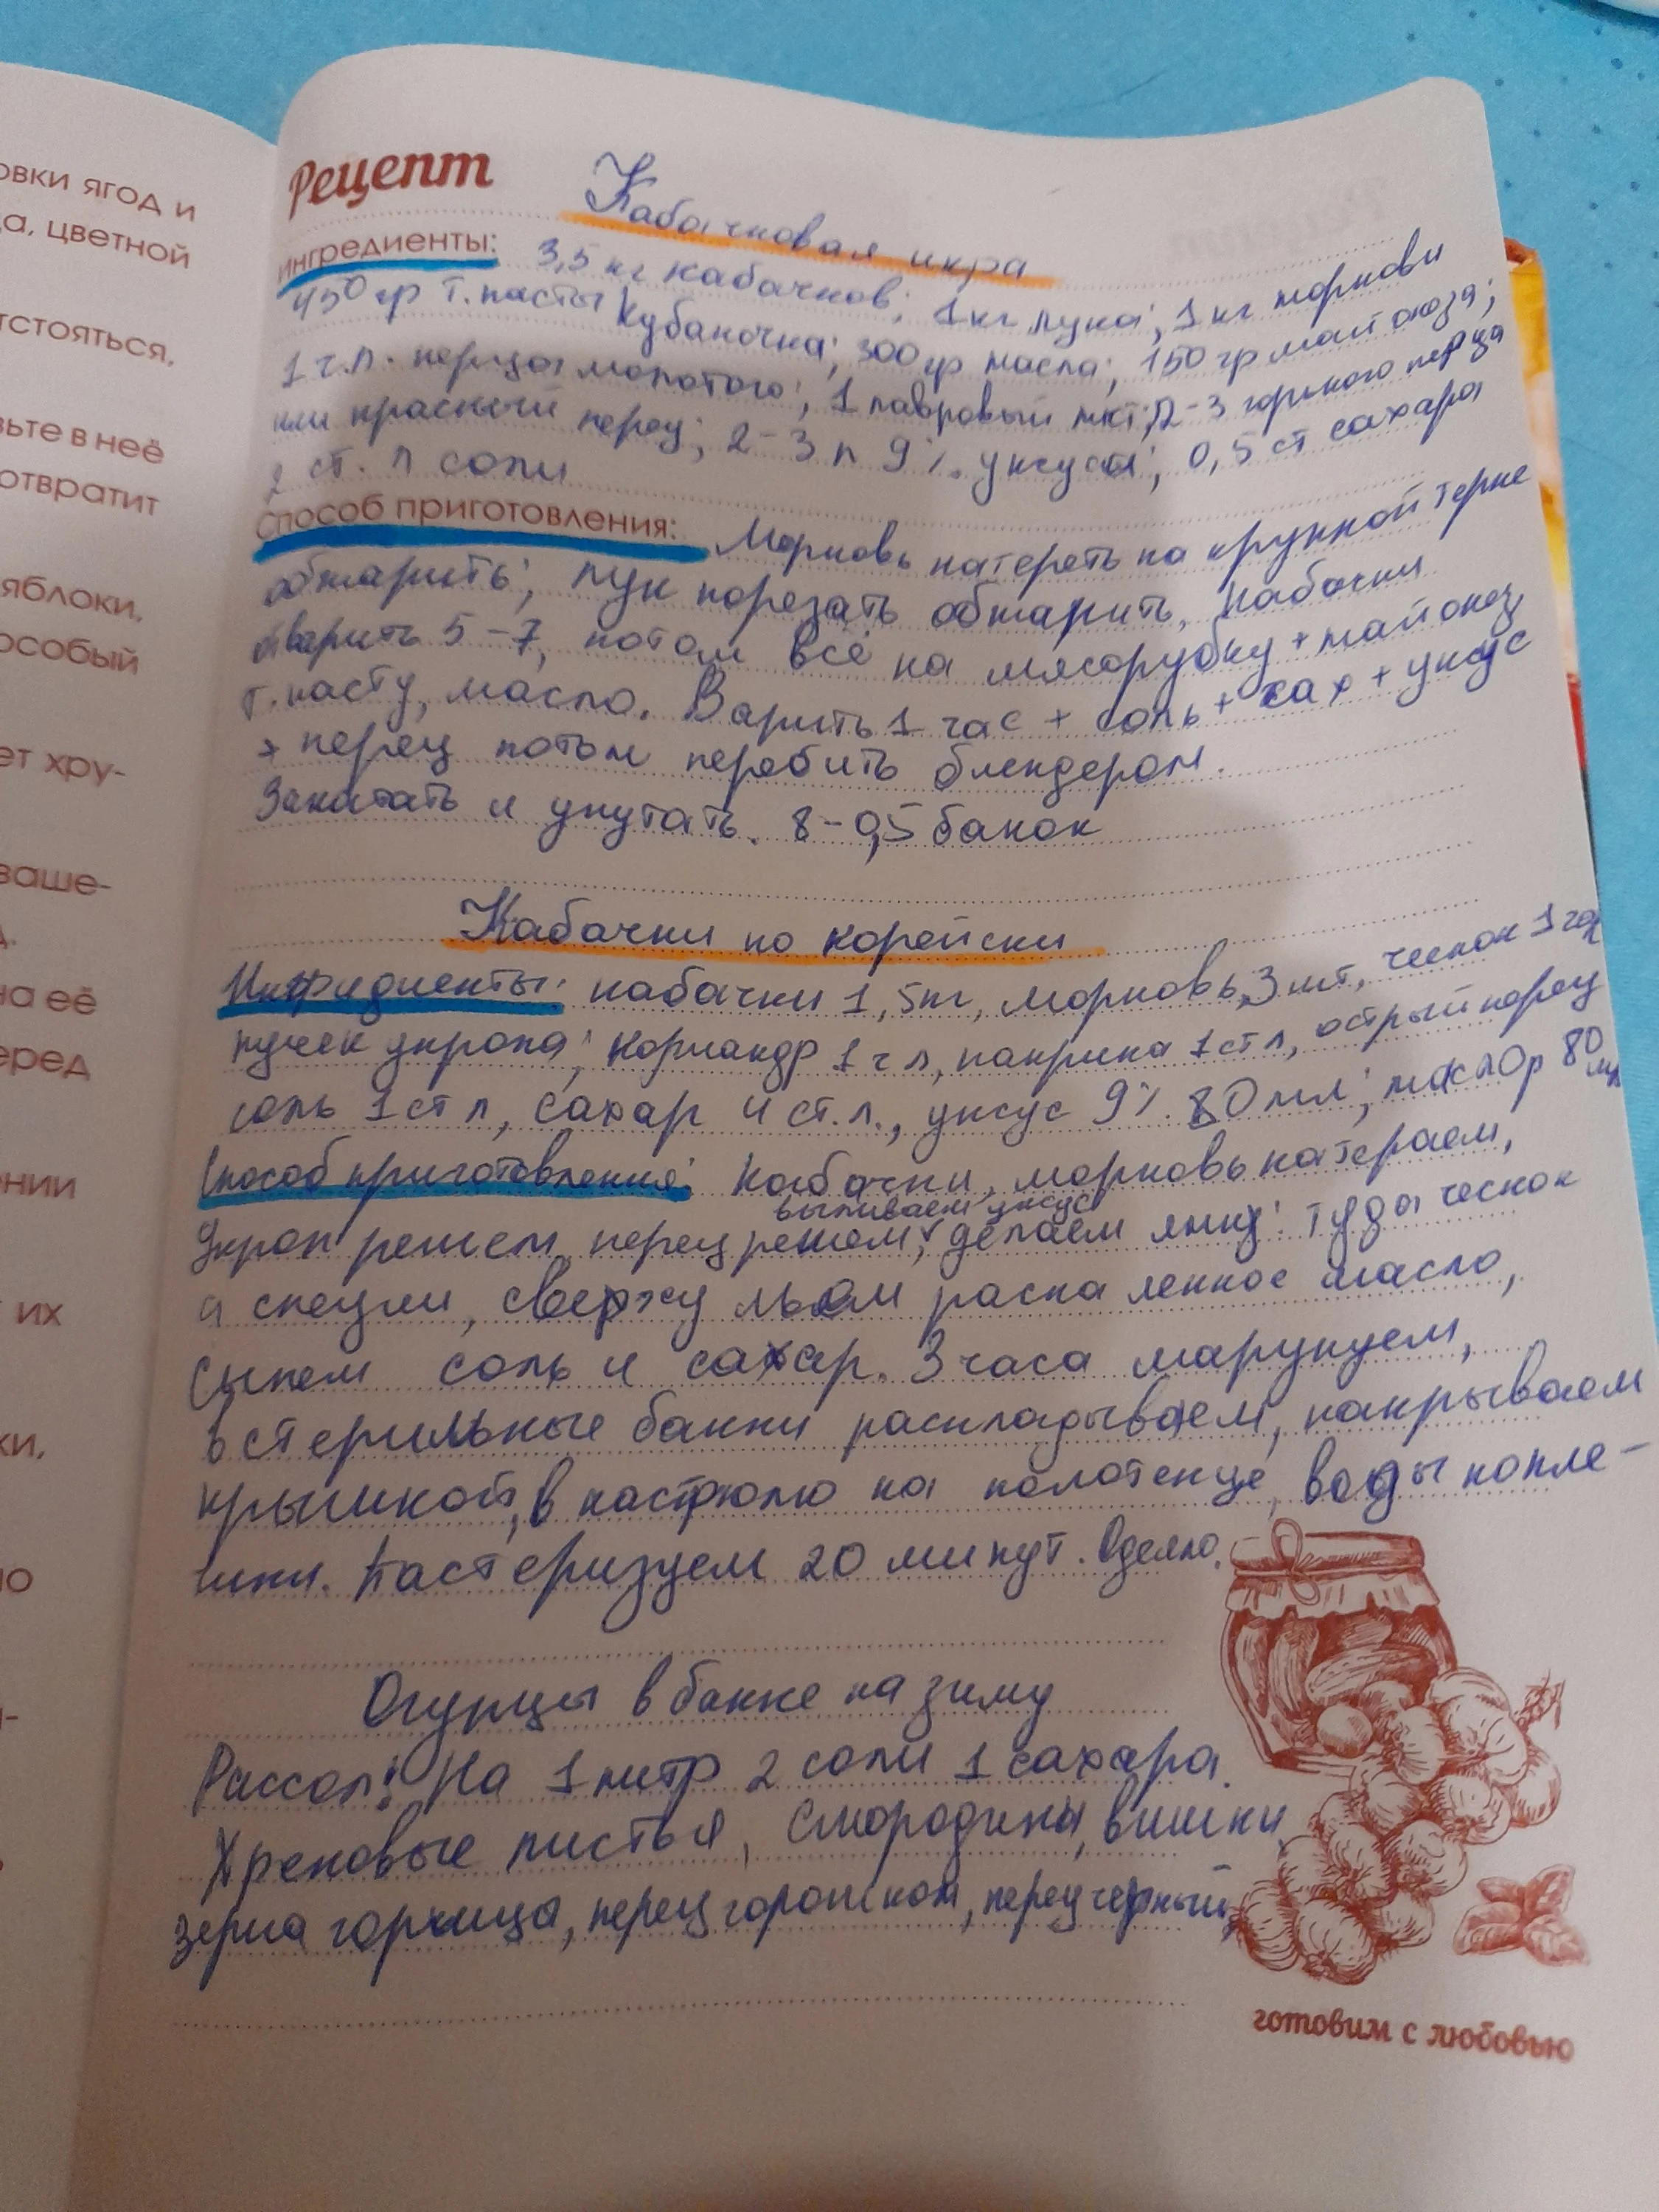 овки ягод и
а, цветной
тстояться,
вьте в неё
отвратит
яблоки,
особый
ет хру-
ваше-
на её
еред
нии
их
ки,
Рецепт
Кабачковая икра
Ингредиенты: 3,5 кг кабачков; 1 кг лука; 1 кг моркови
450 гр т. пасты Кубаночка; 300 гр масла; 150 гр майонеза;
1 ч.л. перца молотого; 1 лавровый лист; 2-3 горького перца
или красный перец; 2-3 л 9% уксуса; 0,5 ст сахара
2 ст. л соли
Способ приготовления: Морковь натереть на крупной терке
обжарить; лук порезать обжарить, кабачки
отварить 5-7, потом всё на мясорубку + майонез,
т. пасту, масло. Варить 1 час + соль + сах + уксус
+ перец потом перебить блендером.
Закатать и укутать. 8-0,5 банок
Кабачки по корейски
Ингридиенты: кабачки 1,5кг, морковь 3 шт, чеснок 1 гол
пучек укропа; кориандр 1 ч л, паприка 1 ст л, острый перец
соль 1 ст л, сахар 4 ст. л., уксус 9% 80 мл; масло р 80 мл
Способ приготовления: Кабачки, морковь натераем,
выливаем уксус
Укроп режем, перец режем, делаем ямку: туда чеснок
и специи, сверху льем раскаленное масло,
сыпем соль и сахар. 3 часа марунуем,
в стерильные банки раскладываем, накрываем
крышкой, в кастрюлю на полотенце, воды по пле-
чики. Пастеризуем 20 минут. Одеяло.
Огурцы в банке на зиму
Рассол: На 1 литр 2 соли 1 сахара.
Хреновые листья, смородины, вишни,
зерна горчица, перец горошком, перец черный,
готовим с любовью